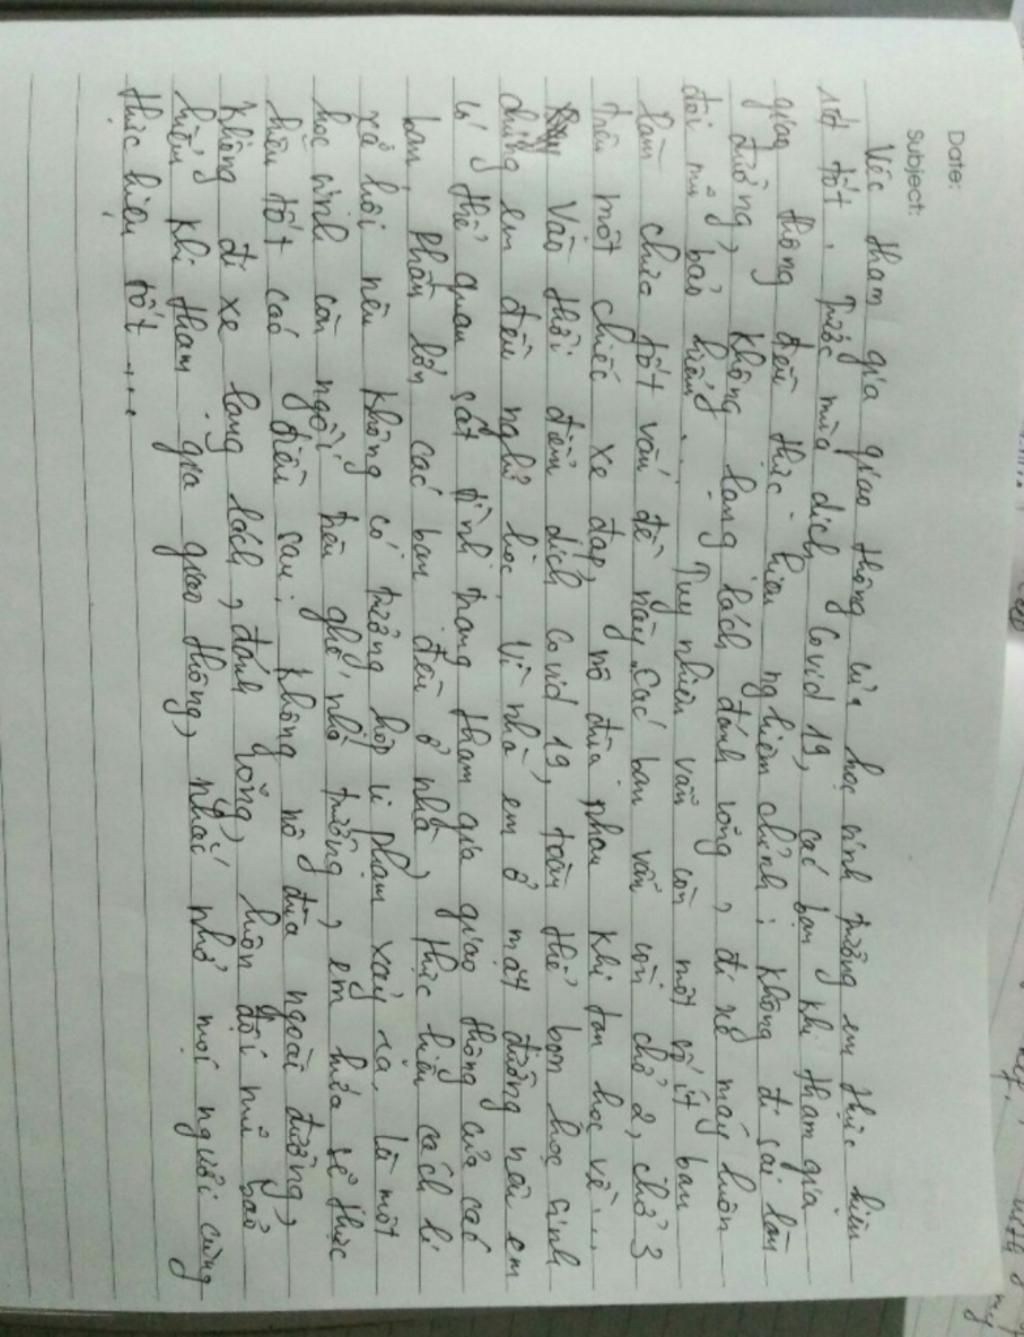 Date:
Subject:
Việc tham gia giao thông của học sinh trường em thực hiện
rất tốt. Trước mùa dịch Covid 19, các bạn khi tham gia
giao thông đều thực hiện nghiêm chỉnh: không đi sai làn
đường, không lạng lách đánh võng, đi xe máy luôn
đội mũ bảo hiểm... Tuy nhiên vẫn còn một số ít bạn
làm chưa tốt vấn đề này. Các bạn vẫn còn chở 2, chở 3
trên một chiếc xe đạp, nô đùa khi tan học về...
Vào thời điểm dịch Covid 19, toàn thể bọn học sinh
chúng em đều nghỉ học. Vì nhà em ở mặt đường nên em
có thể quan sát tình trạng tham gia giao thông của các
bạn. Phần lớn các bạn đều ở nhà, thực hiện cách li
xã hội nên không có trường hợp vi phạm xảy ra. Là một
học sinh còn ngồi trên ghế nhà trường, em hứa sẽ thực
hiện tốt các điều sau: không nô đùa ngoài đường,
không đi xe lạng lách, đánh võng, luôn đội mũ bảo
hiểm khi tham gia giao thông, nhắc nhở mọi người cùng
thực hiện tốt ...